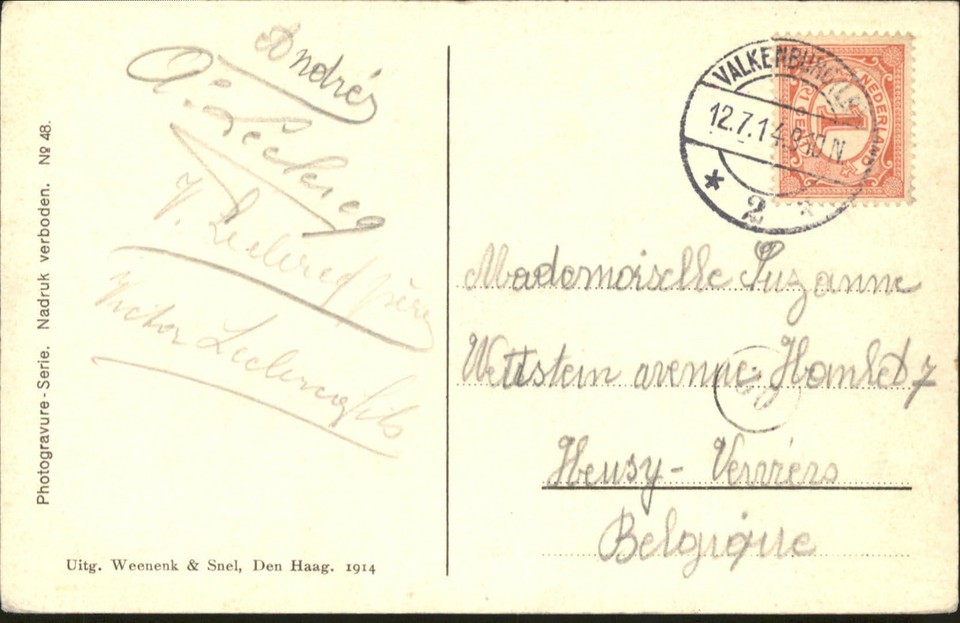 André
A. Leclercq
V. Leclercq père
Victor Leclercq fils
Photogravure-Serie. Nadruk verboden. No 48.
Uitg. Weenenk & Snel, Den Haag. 1914
VALKENBURG (L.)
12.7.14 9-10 N
2
NEDERLAND
1
Mademoiselle Suzanne
Wettstein avenue Hanlet 7
Heusy - Verviers
Belgique